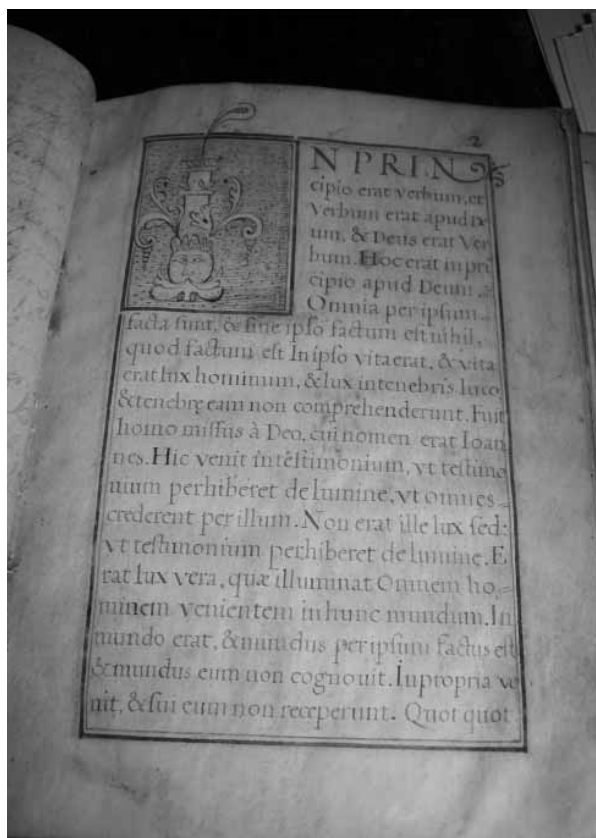 2
N PRIN
cipio erat verbum, et
Verbum erat apud De
um, & Deus erat Ver
bum. Hoc erat in pri
cipio apud Deum.
Omnia per ipsum
facta sunt, & sine ipso factum est nihil,
quod factum est In ipso vita erat, & vita
erat lux hominum, & lux in tenebris lucet
& tenebrę eam non comprehenderunt. Fuit
homo missus à Deo, cui nomen erat Ioan
nes. Hic venit in testimonium, vt testimo
nium perhiberet de lumine, vt omnes
crederent per illum. Non erat ille lux sed:
vt testimonium perhiberet de lumine. E
rat lux vera, quæ illuminat Omnem ho,
minem venientem in hunc mundum. In
mundo erat, & mundus per ipsum factus est
& mundus eum non cognouit. In propria ve
nit, & sui eum non receperunt. Quot quot